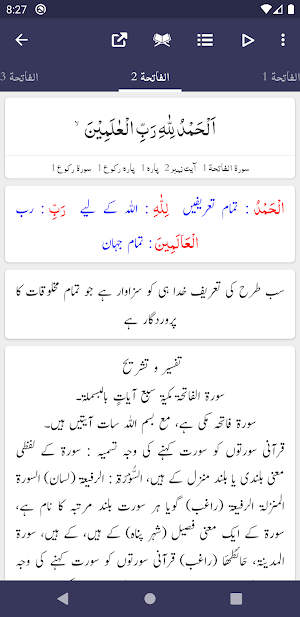 8:27
الفاتحة 3
الفاتحة 2
الفاتحة 1
اَلْحَمْدُ لِلّٰهِ رَبِّ الْعٰلَمِيْنَ ۙ
سورۃ الفاتحۃ 1 آیت نمبر 2 پارہ 1 پارہ رکوع 1 سورۃ رکوع 1
الْحَمْدُ : تمام تعریفیں لِلّٰهِ : اللہ کے لیے رَبِّ : رب
الْعَالَمِينَ : تمام جہان
سب طرح کی تعریف خدا ہی کو سزاوار ہے جو تمام مخلوقات کا
پروردگار ہے
تفسیر و تشریح
سورۃ الفاتحۃ مکیۃ سبع آیاتٍ بالبسملۃ۔
سورۃ فاتحہ مکی ہے، مع بسم اللہ سات آیتیں ہیں۔
قرآنی سورتوں کو سورت کہنے کی وجہ تسمیہ : سورة کے لفظی
معنی بلندی یا بلند منزل کے ہیں، السُّوْرَة : الرفیعۃ (لسان) السورة
المنزلۃ الرفیعۃ (راغب) گویا ہر سورت بلند مرتبہ کا نام ہے،
سورة کے ایک معنی فصیل (شہر پناہ) کے ہیں، کے ہیں، سورة
المدینۃ، حَائطُھَا (راغب) قرآنی سورتوں کو سورت کہنے کی وجہ